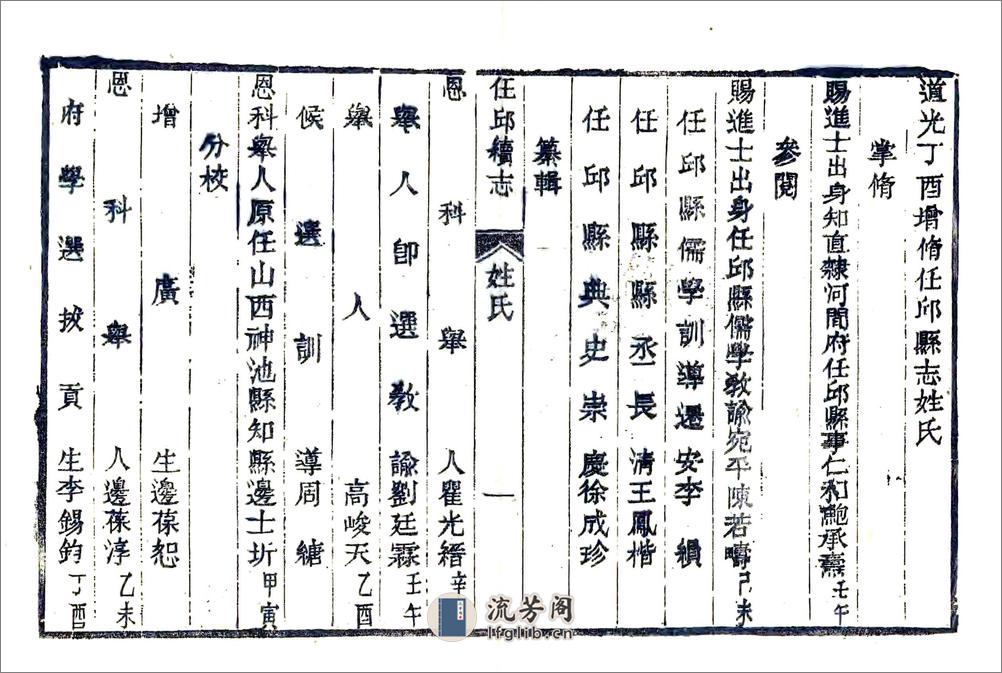 道光丁酉增脩任邱縣志姓氏
掌脩
賜進士出身知直隸河間府任邱縣事仁和鮑承燾壬午
參閱
賜進士出身任邱縣儒學教諭宛平陳若疇己未
任邱縣儒學訓導遷安李縜
任邱縣縣丞長清王鳳楷
任邱縣典史崇慶徐成珍
纂輯
任邱續志
姓氏
一
恩科舉人瞿光縉辛
舉人卽選教諭劉廷霖壬午
舉人高峻天乙酉
候選訓導周䌅
恩科舉人原任山西神池縣知縣邊士圻甲寅
分校
增廣生邊葆恕
恩科舉人邊葆淳乙未
府學選拔貢生李錫鈞丁酉
流芳阁
lfglib.cn